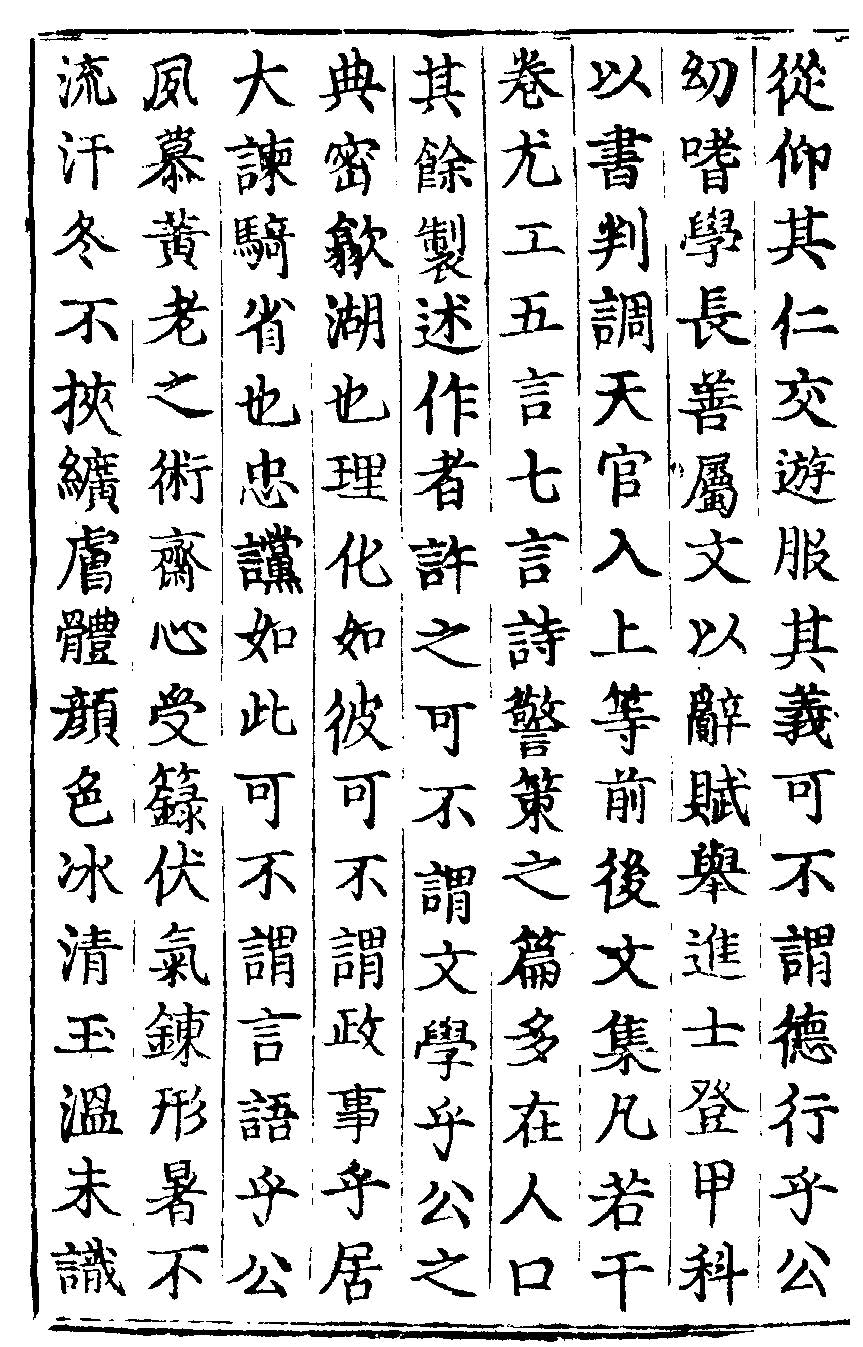 從仰其仁交遊服其義可不謂德行乎公
幼嗜學長善屬文以辭賦舉進士登甲科
以書判調天官入上等前後文集凡若干
卷尤工五言七言詩警策之篇多在人口
其餘製述作者許之可不謂文學乎公之
典密歙湖也理化如彼可不謂政事乎居
大諫騎省也忠讜如此可不謂言語乎公
夙慕黃老之術齋心受籙伏氣鍊形暑不
流汗冬不挾纊膚體顏色冰清玉溫未識